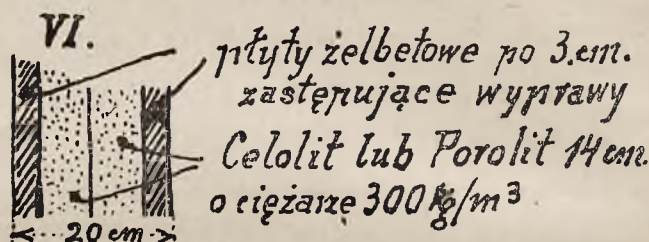 VI.
płyty żelbetowe po 3.cm.
zastępujące wyprawy
Celolit lub Porolit 14 cm.
o ciężarze 300 kg/m³
20 cm